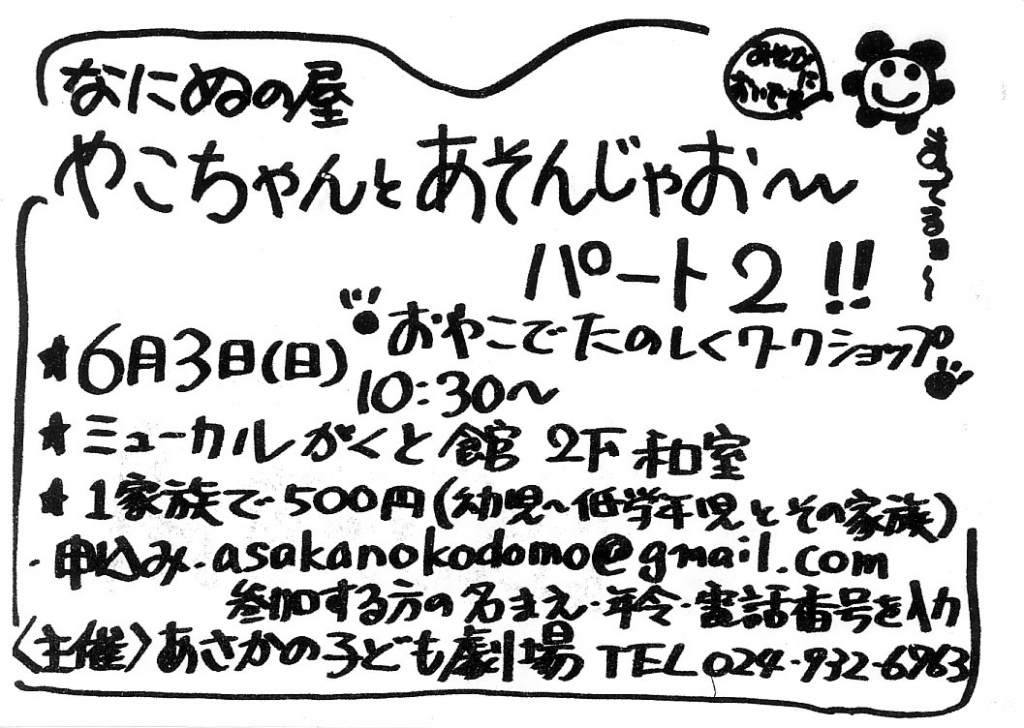 なにぬの屋
あそびに
おいでよ
まってるヨ〜
やこちゃんとあそんじゃお〜
パート2!!
おやこでたのしくワークショップ
★6月3日(日)
10:30〜
★ミューカルがくと館 2F 和室
★1家族で500円(幼児〜低学年児とその家族)
・申込み・asakanokodomo@gmail.com
参加する方の名まえ・年令・電話番号を入力
〈主催〉あさかの子ども劇場 TEL 024-932-6963